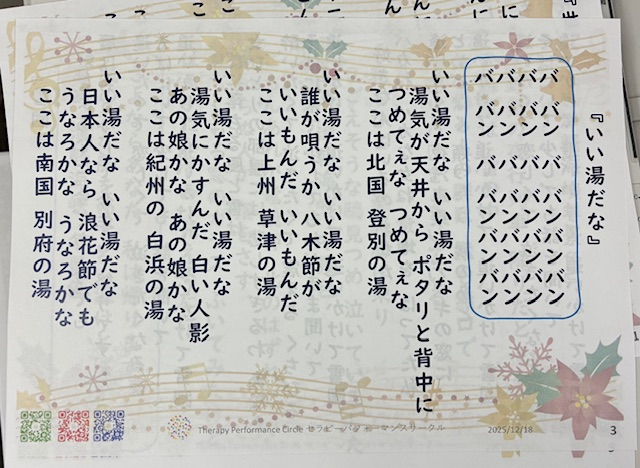 『いい湯だな』
バ バン バ バン バン バン
バ バン バ バン バン バン
バ バン バ バン バン バン
バ バン バ バン バン バン
いい湯だな いい湯だな
湯気が天井から ポタリと背中に
つめてぇな つめてぇな
ここは北国 登別の湯
いい湯だな いい湯だな
誰が唄うか 八木節が
いいもんだ いいもんだ
ここは上州 草津の湯
いい湯だな いい湯だな
湯気にかすんだ 白い人影
あの娘かな あの娘かな
ここは紀州の 白浜の湯
いい湯だな いい湯だな
日本人なら 浪花節でも
うなろかな うなろかな
ここは南国 別府の湯
Therapy Performance Circle セラピーパフォーマンスサークル
2025/12/18
3